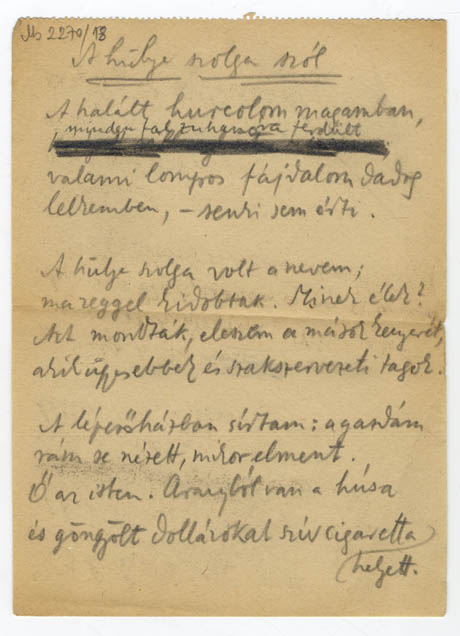 Ms 2270/18
A hülye szolga szól
A halált hurcolom magamban,
minden fal zuhanásra ferdült
valami lompos fájdalom dadog
lelkemben, – senki sem érti.
A hülye szolga volt a nevem;
ma reggel kidobtak. Minek élek?
Azt mondták, eleszem a mások kenyerét,
akik ügyesebbek és szakszervezeti tagok.
A lépcsőházban sírtam: a gazdám
rám se nézett, mikor elment.
Ő az isten. Aranyból van a húsa
és göngyölt dollárokat szív cigaretta
helyett.